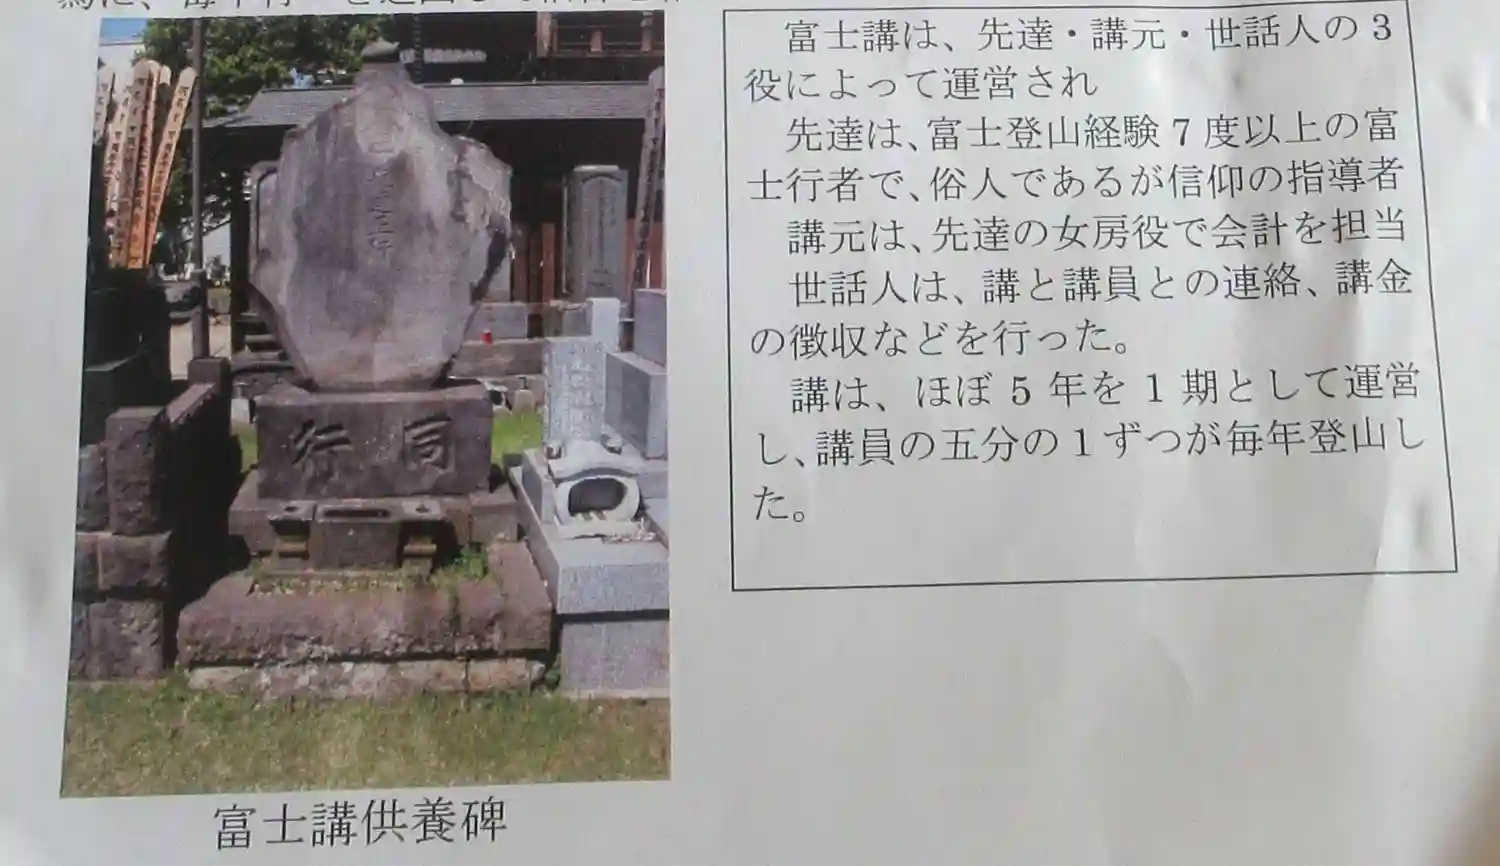 富士講は、先達・講元・世話人の3
役によって運営され
先達は、富士登山経験7度以上の富
士行者で、俗人であるが信仰の指導者
講元は、先達の女房役で会計を担当
世話人は、講と講員との連絡、講金
の徴収などを行った。
講は、ほぼ5年を1期として運営
し、講員の五分の1ずつが毎年登山し
た。
行同
富士講供養碑